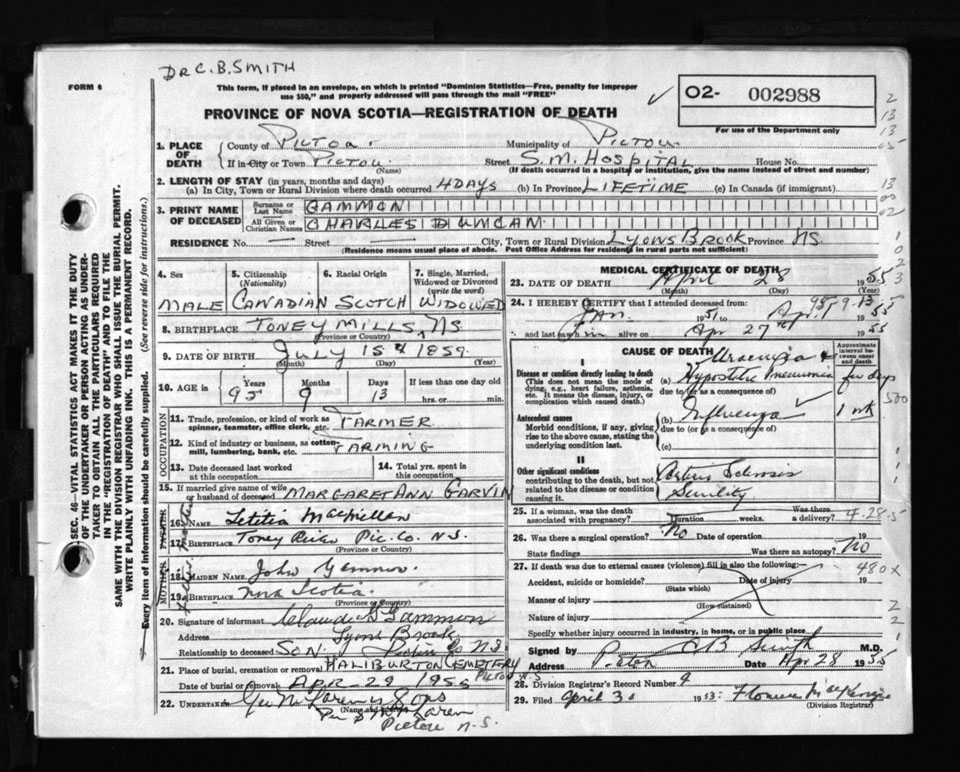 DR C. B. SMITH
FORM 6
This form, if placed in an envelope, on which is printed "Dominion Statistics—Free, penalty for improper
use $50," and properly addressed will pass through the mail "FREE"
PROVINCE OF NOVA SCOTIA—REGISTRATION OF DEATH
02- 002988
For use of the Department only
1. PLACE OF DEATH
County of PICTOU
Municipality of PICTOU
If in City or Town PICTOU (Name) Street S. M. HOSPITAL House No.
(If death occurred in a hospital or institution, give the name instead of street and number)
2. LENGTH OF STAY (in years, months and days)
(a) In City, Town or Rural Division where death occurred 4 DAYS (b) In Province LIFETIME (c) In Canada (if immigrant)
3. PRINT NAME OF DECEASED
Surname or Last Name GAMMON
All Given or Christian Names CHARLES DUNCAN
RESIDENCE No. — Street — City, Town or Rural Division LYONS BROOK Province NS
(Residence means usual place of abode. Post Office Address for residents in rural parts not sufficient)
4. Sex MALE
5. Citizenship (Nationality) CANADIAN
6. Racial Origin SCOTCH
7. Single, Married, Widowed or Divorced (write the word) WIDOWED
8. BIRTHPLACE TONEY MILLS, NS
(Province or Country)
9. DATE OF BIRTH July 15th 1859
(Month) (Day) (Year)
10. AGE in Years 95 Months 9 Days 13 If less than one day old
hrs. or min.
OCCUPATION
11. Trade, profession, or kind of work as spinner, teamster, office clerk, etc. FARMER
12. Kind of industry or business, as cotton-mill, lumbering, bank, etc. FARMING
13. Date deceased last worked at this occupation
14. Total yrs. spent in this occupation
15. If married give name of wife or husband of deceased MARGARET ANN GARVIN
FATHER
16. Name Letitia MacMillan
17. Birthplace Toney River Pic. Co. N.S.
(Province or Country)
MOTHER
18. MAIDEN NAME John Gammon
19. BIRTHPLACE Nova Scotia
(Province or Country)
20. Signature of informant Claude G Gammon
Address Lyons Brook
Relationship to deceased SON. N.S.
21. Place of burial, cremation or removal HALIBURTON CEMETERY
Pictou N.S.
Date of burial or removal APR 29 1955
22. UNDERTAKER
(Name and Address)
Pictou N.S.
MEDICAL CERTIFICATE OF DEATH
23. DATE OF DEATH April 28 1955
(Month) (Day) (Year)
24. I HEREBY CERTIFY that I attended deceased from:
Jan. 1951 to Apr. 1955
and last saw him alive on Apr 27th 1955
CAUSE OF DEATH
Approximate interval between onset and death
I
Disease or condition directly leading to death
(This does not mean the mode of dying, e.g., heart failure, asthenia, etc. It means the disease, injury, or complication which caused death.)
(a) Uraemia & Hypostatic Pneumonia few days
due to (or as a consequence of)
Antecedent causes
Morbid conditions, if any, giving rise to the above cause, stating the underlying condition last.
(b) Influenza 1 wk
due to (or as a consequence of)
(c)
II
Other significant conditions
contributing to the death, but not related to the disease or condition causing it.
Senility
25. If a woman, was the death associated with pregnancy? Duration weeks. Was there a delivery? 4-28-5
26. Was there a surgical operation? No Date of operation 19
State findings Was there an autopsy? No
27. If death was due to external causes (violence) fill in also the following: 480X
Accident, suicide or homicide? Date of injury 19
(State which)
Manner of injury
(How sustained)
Nature of injury
Specify whether injury occurred in industry, in home, or in public place
Signed by C B Smith M.D.
Address Pictou Date Apr 28 1955
28. Division Registrar's Record Number 9
29. Filed April 30
(Division Registrar)
SEC. 46—VITAL STATISTICS ACT MAKES IT THE DUTY
OF THE UNDERTAKER OR PERSON ACTING AS UNDER-
TAKER TO OBTAIN ALL THE PARTICULARS REQUIRED
IN THE "REGISTRATION OF DEATH" AND TO FILE THE
SAME WITH THE DIVISION REGISTRAR WHO SHALL ISSUE THE BURIAL PERMIT.
WRITE PLAINLY WITH UNFADING INK. THIS IS A PERMANENT RECORD.
Every item of information should be carefully supplied. (See reverse side for instructions.)